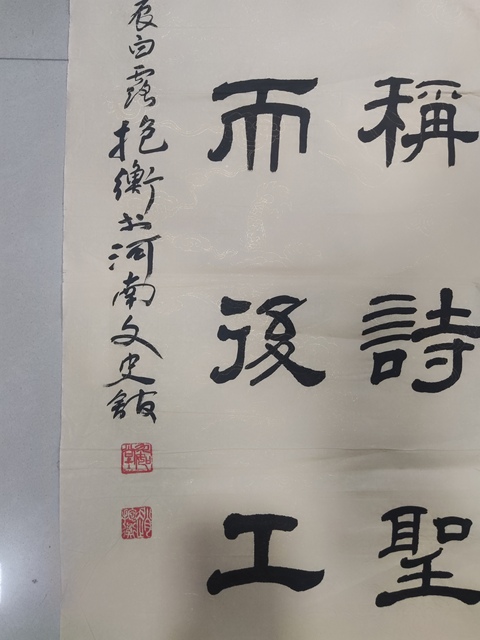 稱詩聖
而後工
辰白露抱衡书河南文史館